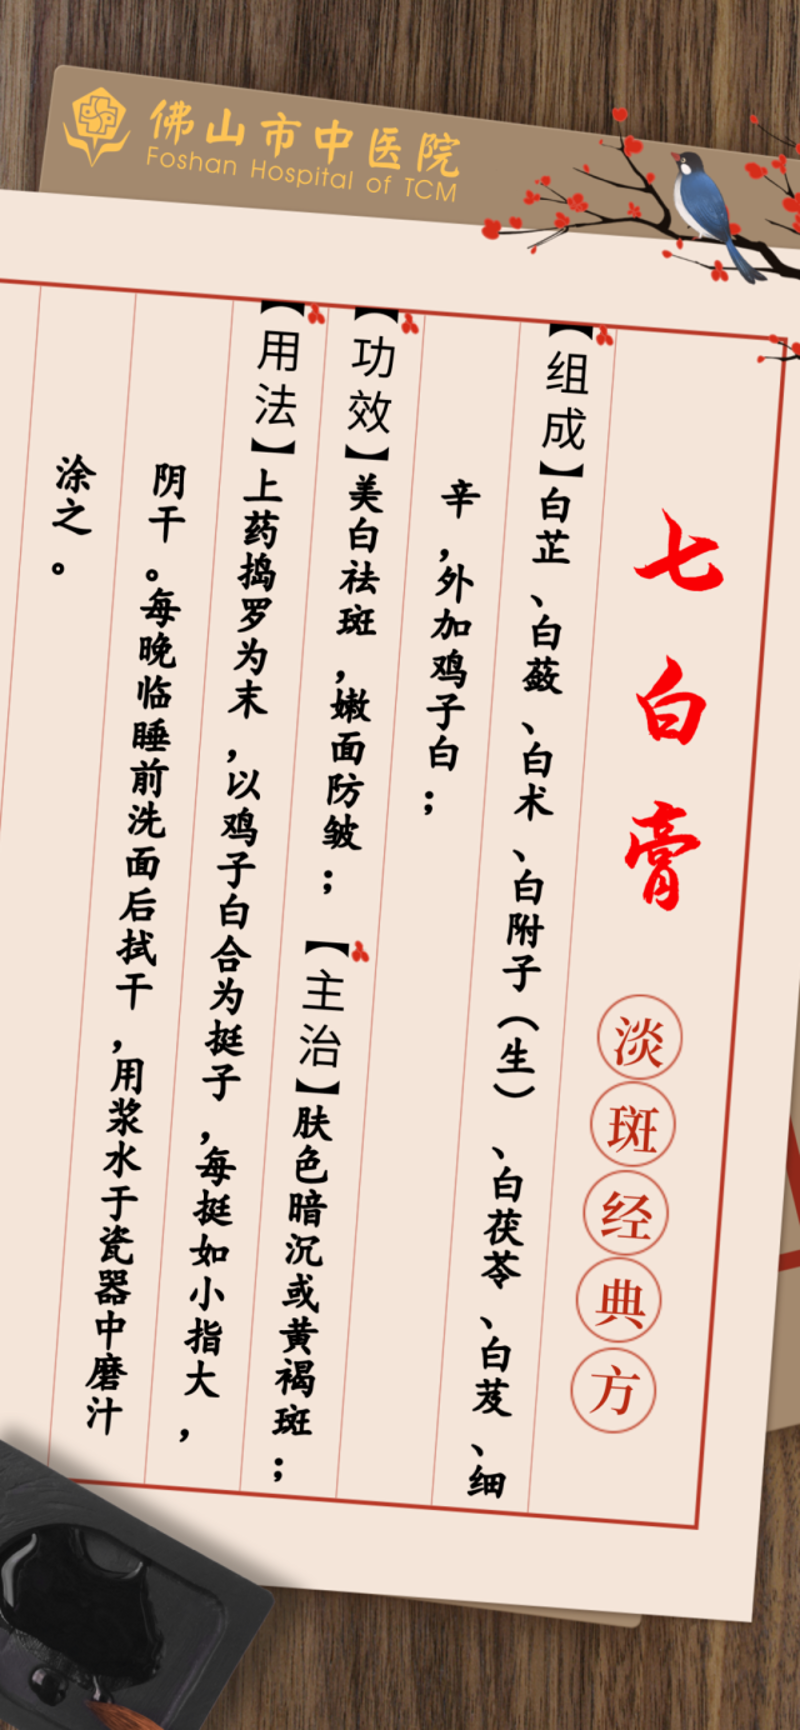 佛山市中医院
Foshan Hospital of TCM
七白膏
淡斑经典方
【组成】白芷、白蔹、白术、白附子（生）、白茯苓、白芨、细
辛，外加鸡子白；
【功效】美白祛斑，嫩面防皱；【主治】肤色暗沉或黄褐斑；
【用法】上药捣罗为末，以鸡子白合为挺子，每挺如小指大，
阴干。每晚临睡前洗面后拭干，用浆水于瓷器中磨汁
涂之。